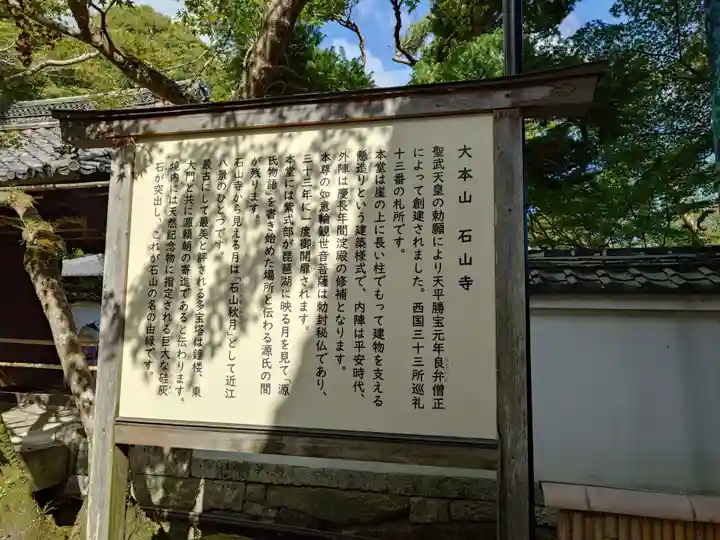 大本山　石山寺
聖武天皇の勅願により天平勝宝元年良弁僧正
によって創建されました。西国三十三所巡礼
十三番の札所です。
本堂は崖の上に長い柱でもって建物を支える
懸造りという建築様式で、内陣は平安時代、
外陣は慶長年間淀殿の修補となります。
本尊の如意輪観世音菩薩は勅封秘仏であり、
三十三年に一度御開扉されます。
本堂には紫式部が琵琶湖に映る月を見て『源
氏物語』を書き始めた場所と伝わる源氏の間
が残ります。
石山寺から見える月は「石山秋月」として近江
八景のひとつです。
最古にして最美と評される多宝塔は鐘楼、東
大門と共に源頼朝の寄進であると伝わります。
境内には天然記念物に指定される巨大な硅灰
石が突出し、これが石山の名の由縁です。